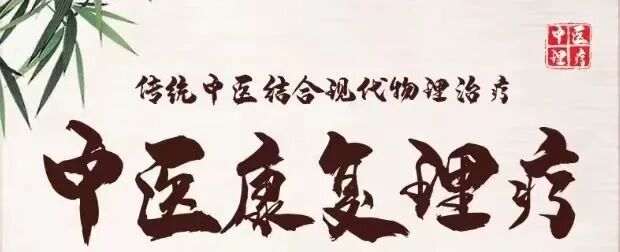 中医
理疗
传统中医结合现代物理治疗
中医康复理疗